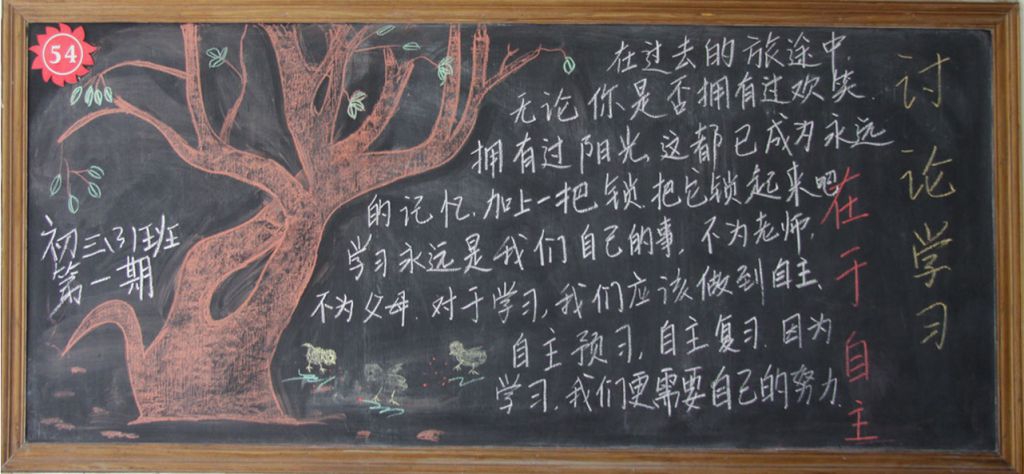 54
讨论学习
在于自主
在过去的旅途中,
无论你是否拥有过欢笑.
拥有过阳光,这都已成为永远
的记忆.加上一把锁.把它锁起来吧
学习永远是我们自己的事,不为老师,
不为父母.对于学习,我们应该做到自主、
自主预习,自主复习.因为
学习,我们更需要自己的努力.
初三(3)班
第一期